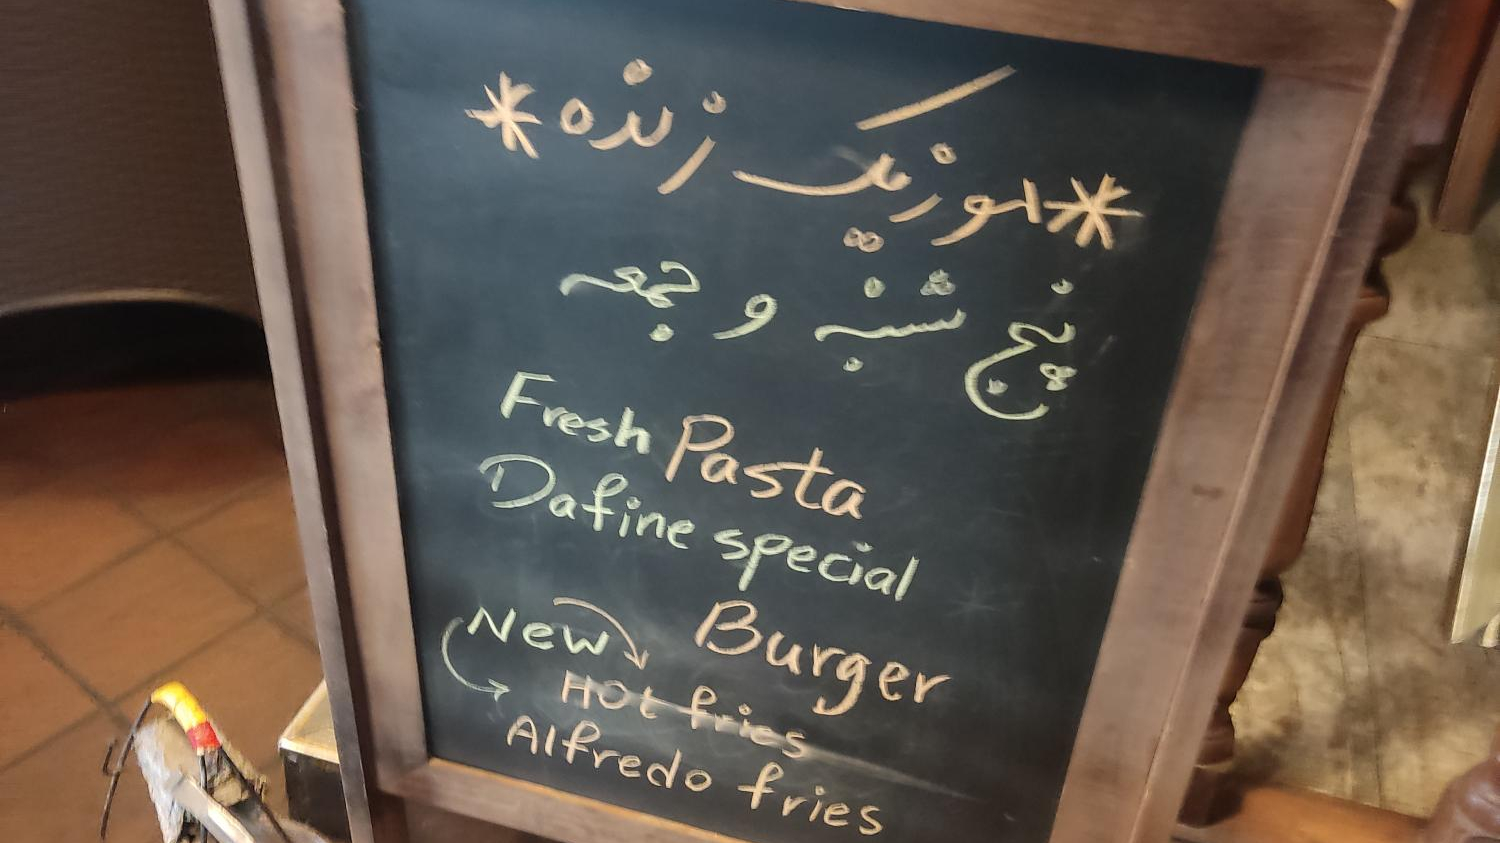 *موزیک زنده*
پنج شنبه و جمعه
Fresh Pasta
Dafine special
New Burger
Hot fries
Alfredo fries